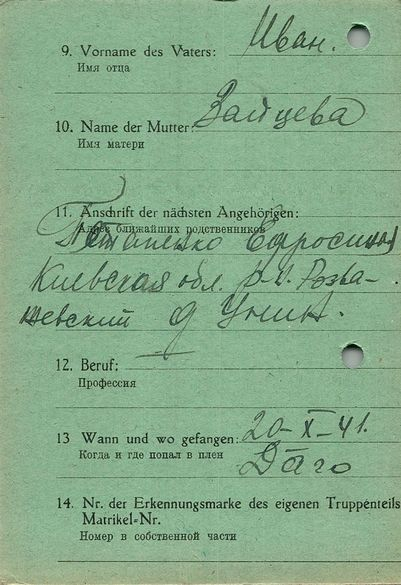 9. Vorname des Vaters: Иван.
Имя отца
10. Name der Mutter: Зайцева
Имя матери
11. Anschrift der nächsten Angehörigen:
Адрес ближайших родственников
Потапенко
Киевская обл. р-н. Розва-
жевский д
12. Beruf:
Профессия
13 Wann und wo gefangen: 20-X-41.
Когда и где попал в плен Даго
14. Nr. der Erkennungsmarke des eigenen Truppenteils
Matrikel-Nr.
Номер в собственной части